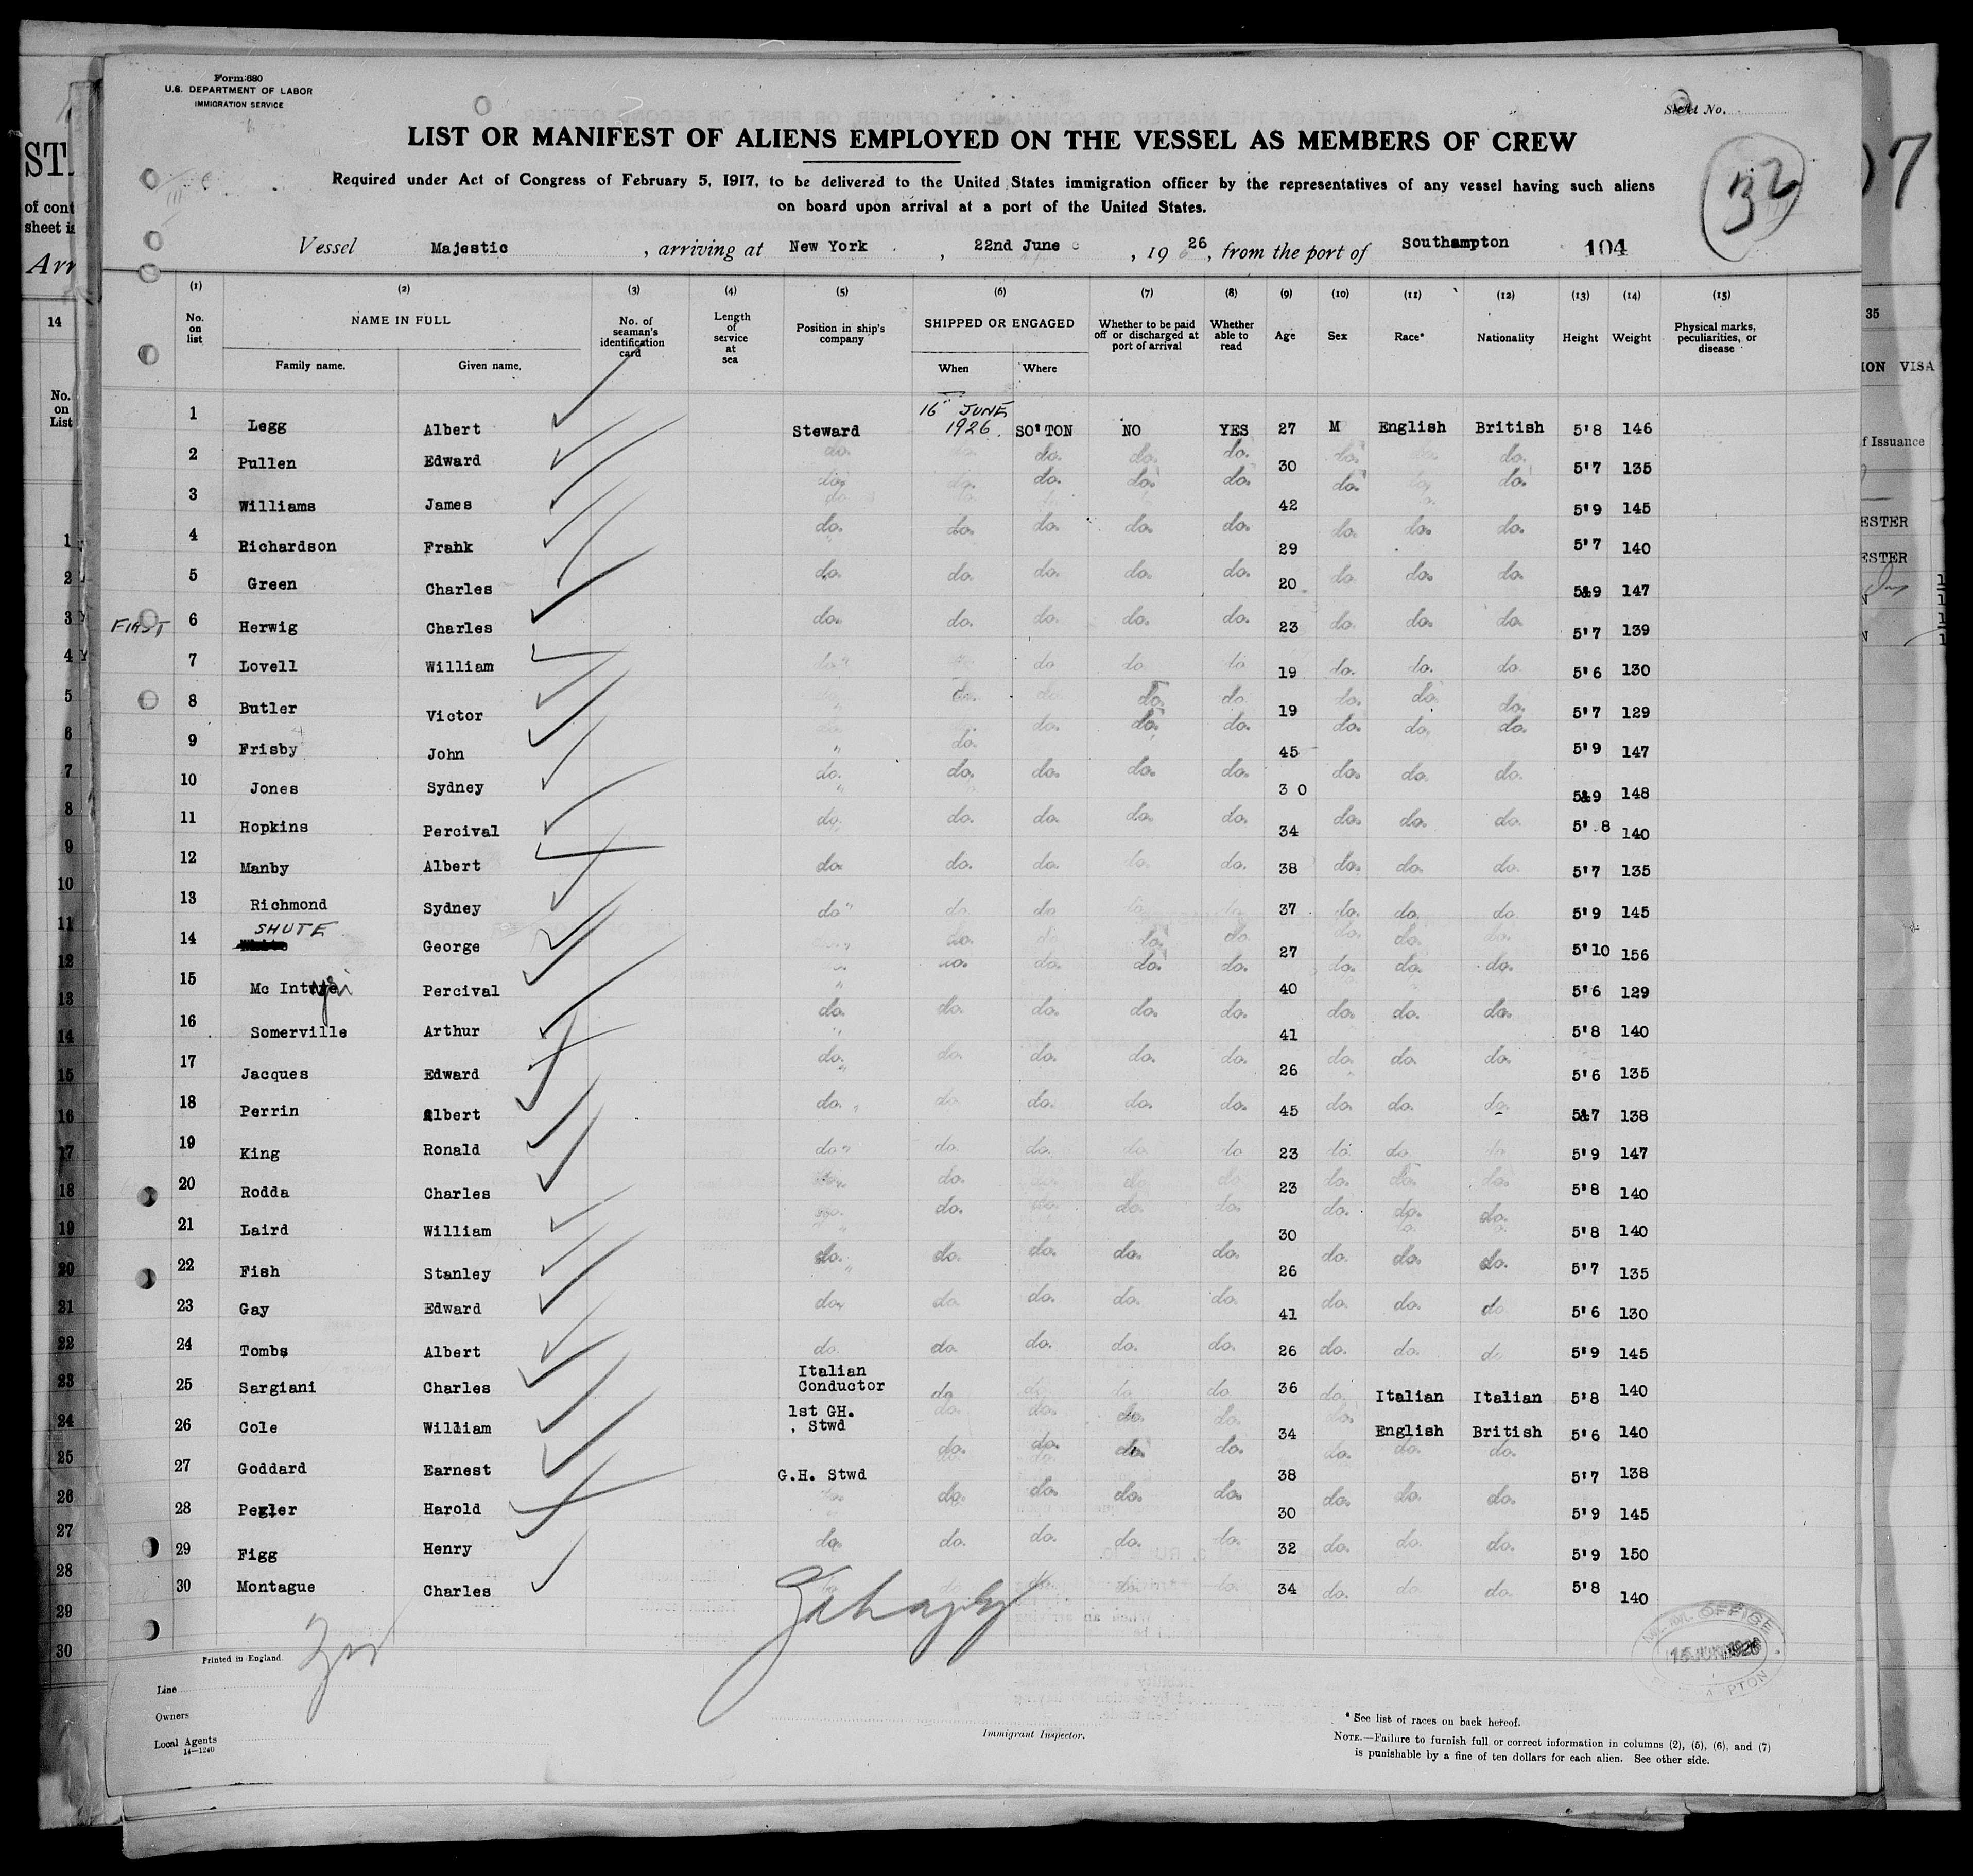 Form 680
U.S. DEPARTMENT OF LABOR
IMMIGRATION SERVICE
No.
LIST OR MANIFEST OF ALIENS EMPLOYED ON THE VESSEL AS MEMBERS OF CREW
Required under Act of Congress of February 5, 1917, to be delivered to the United States immigration officer by the representatives of any vessel having such aliens
on board upon arrival at a port of the United States.
32
Vessel Majestic, arriving at New York, 22nd June, 1926, from the port of Southampton 104
(1) (2) (3) (4) (5) (6) (7) (8) (9) (10) (11) (12) (13) (14) (15)
No. on list NAME IN FULL Family name. Given name. No. of seaman's identification card Length of service at sea Position in ship's company SHIPPED OR ENGAGED When Where Whether to be paid off or discharged at port of arrival Whether able to read Age Sex Race* Nationality Height Weight Physical marks, peculiarities, or disease
1 Legg Albert Steward 16" JUNE 1926. SO'TON NO YES 27 M English British 5'8 146
2 Pullen Edward do. do. do. do. do. 30 do. do. do. 5'7 135
3 Williams James do. do. do. do. do. 42 do. do. do. 5'9 145
4 Richardson Frank do. do. do. do. do. 29 do. do. do. 5'7 140
5 Green Charles do. do. do. do. do. 20 do. do. do. 5'9 147
FIRST 6 Herwig Charles do. do. do. do. do. 23 do. do. do. 5'7 139
7 Lovell William do. do. do. do. do. 19 do. do. do. 5'6 130
8 Butler Victor do. do. do. do. do. 19 do. do. do. 5'7 129
9 Frisby John do. do. do. do. do. 45 do. do. do. 5'9 147
10 Jones Sydney do. do. do. do. do. 30 do. do. do. 5'9 148
11 Hopkins Percival do. do. do. do. do. 34 do. do. do. 5'8 140
12 Manby Albert do. do. do. do. do. 38 do. do. do. 5'7 135
13 Richmond Sydney do. do. do. do. do. 37 do. do. do. 5'9 145
14 SHUTE George do. do. do. do. do. 27 do. do. do. 5'10 156
15 Mc Intyre Percival do. do. do. do. do. 40 do. do. do. 5'6 129
16 Somerville Arthur do. do. do. do. do. 41 do. do. do. 5'8 140
17 Jacques Edward do. do. do. do. do. 26 do. do. do. 5'6 135
18 Perrin Albert do. do. do. do. do. 45 do. do. do. 5'7 138
19 King Ronald do. do. do. do. do. 23 do. do. do. 5'9 147
20 Rodda Charles do. do. do. do. do. 23 do. do. do. 5'8 140
21 Laird William do. do. do. do. do. 30 do. do. do. 5'8 140
22 Fish Stanley do. do. do. do. do. 26 do. do. do. 5'7 135
23 Gay Edward do. do. do. do. do. 41 do. do. do. 5'6 130
24 Tombs Albert do. do. do. do. do. 26 do. do. do. 5'9 145
25 Sargiani Charles Italian Conductor do. do. do. do. 36 do. Italian Italian 5'8 140
26 Cole William 1st GH. Stwd do. do. do. do. 34 do. English British 5'6 140
27 Goddard Earnest G.H. Stwd do. do. do. do. 38 do. do. do. 5'7 138
28 Pegler Harold do. do. do. do. do. 30 do. do. do. 5'9 145
29 Figg Henry do. do. do. do. do. 32 do. do. do. 5'9 150
30 Montague Charles do. do. do. do. do. 34 do. do. do. 5'8 140
Printed in England.
Line
Owners
Local Agents
14-1240
Immigrant Inspector.
OFFICE
15 JUN 1926
* See list of races on back hereof.
NOTE.—Failure to furnish full or correct information in columns (2), (5), (6), and (7)
is punishable by a fine of ten dollars for each alien. See other side.